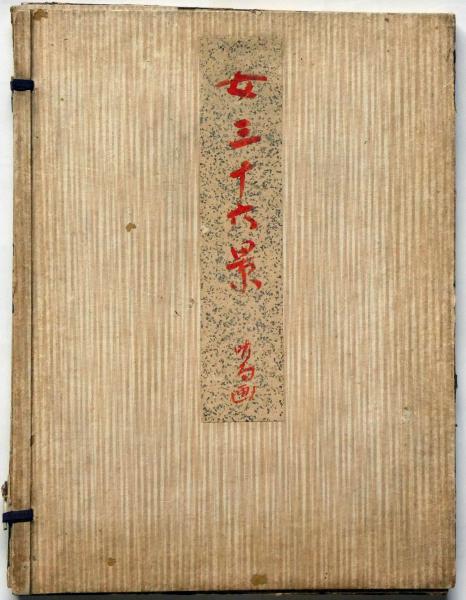 女三十六景
画